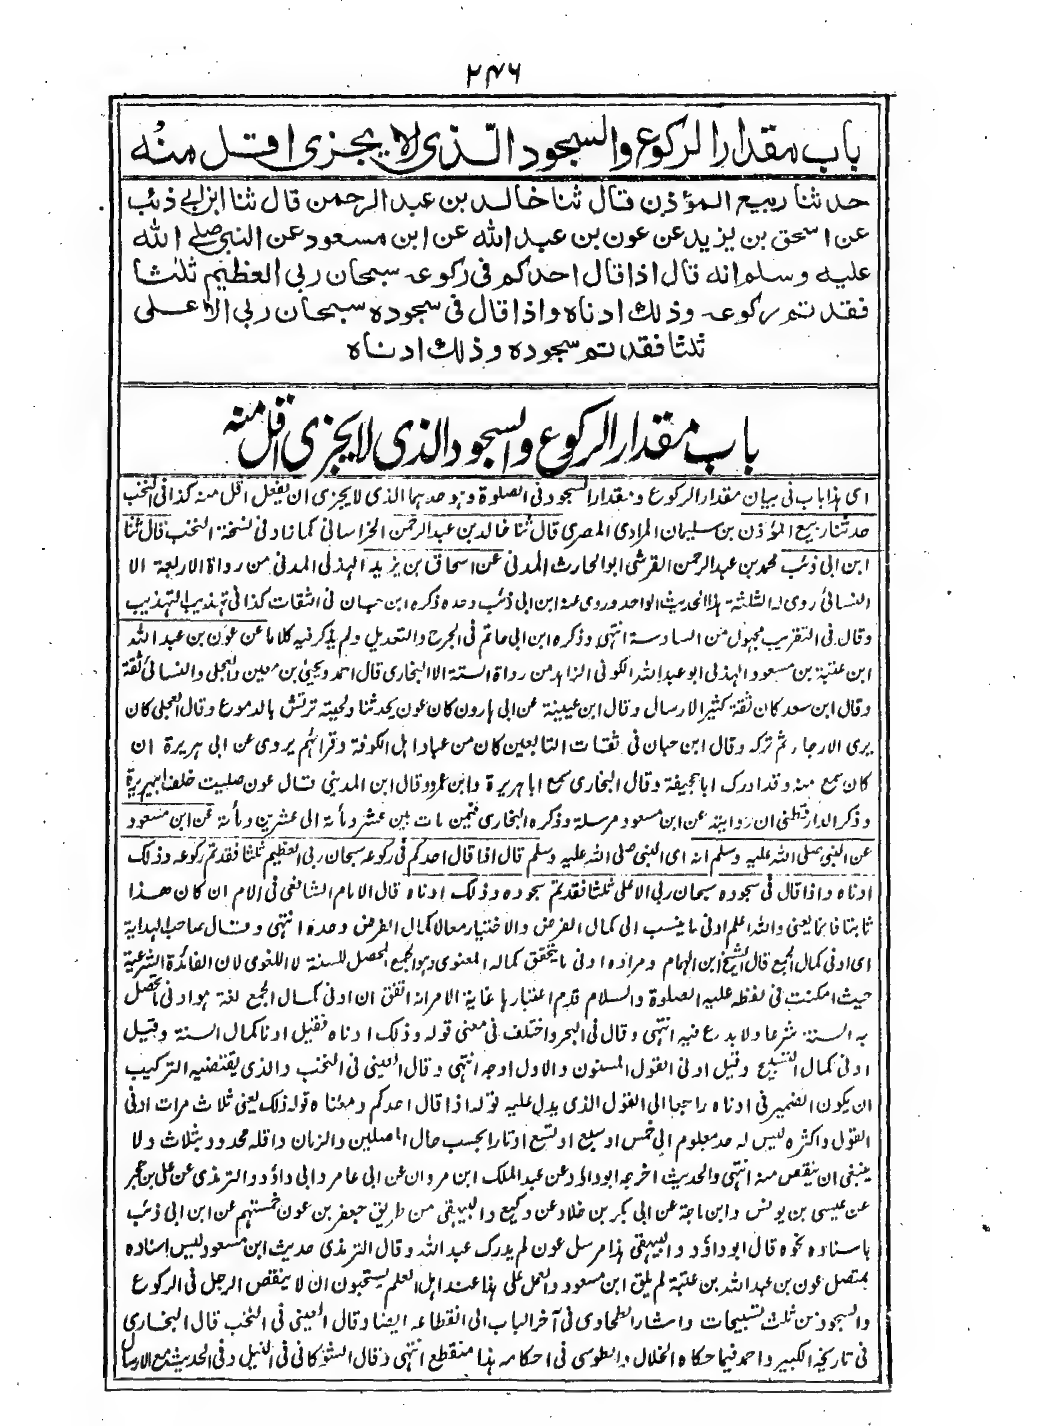 ٢٤٦
باب مقدار الركوع والسجود الذى لا يجزى اقل منه
حدثنا ربيع المؤذن قال ثنا خالد بن عبد الرحمن قال ثنا ابن ابى ذئب
عن اسحق بن يزيد عن عون بن عبد الله عن ابن مسعود عن النبى صلے الله
عليه وسلم انه قال اذا قال احدكم فى ركوعه سبحان ربى العظيم ثلثا
فقد تم ركوعه وذلك ادناه واذا قال فى سجوده سبحان ربى الاعلى
ثلثا فقد تم سجوده وذلك ادناه
باب مقدار الركوع والسجود الذى لا يجزى اقل منه
اى هذا باب فى بيان مقدار الركوع و مقدار السجود فى الصلوة وهو حدهما الذى لا يجزى ان يفعل اقل منه كذا فى النخب
حدثنا ربيع المؤذن بن سليمان المرادى المصرى قال ثنا خالد بن عبد الرحمن الخراسانى كما زاد فى نسخة النخب قال ثنا
ابن ابى ذئب محمد بن عبد الرحمن القرشى ابو الحارث المدنى عن اسحاق بن يزيد الهذلى المدنى من رواة الاربعة الا
النسائى روى له الثلثة هذا الحديث الواحد وروى عنه ابن ابى ذئب وحده ذكره ابن حبان فى الثقات كذا فى تهذيب التهذيب
وقال فى التقريب مجهول من السادسة انتهى وذكره ابن ابى حاتم فى الجرح والتعديل ولم يذكر فيه كلاما عن عون بن عبد الله
ابن عتبة بن مسعود الهذلى ابو عبد الله الكوفى الزاهد من رواة الستة الا البخارى قال احمد ويحيى بن معين والعجلى والنسائى ثقة
وقال ابن سعد كان ثقة كثير الارسال وقال ابن عيينة عن ابى هارون كان عون يحدثنا ولحيته ترتش بالدموع وقال العجلى كان
يرى الارجاء ثم تركه وقال ابن حبان فى ثقات التابعين كان من عباد اهل الكوفة وقرائهم يروى عن ابى هريرة ان
كان سمع منه وقد ادرك ابا جحيفة وقال البخارى سمع ابا هريرة وابن عمرو وقال ابن المدينى قال عون صليت خلف ابيهريرة
وذكر الدارقطنى ان روايته عن ابن مسعود مرسلة وذكره البخارى فيمن مات بين عشر ومأة الى عشرين ومأة عن ابن مسعود
عن النبى صلى الله عليه وسلم انه اى النبى صلى الله عليه وسلم قال اذا قال احدكم فى ركوعه سبحان ربى العظيم ثلثا فقد تم ركوعه وذلك
ادناه واذا قال فى سجوده سبحان ربى الاعلى ثلثا فقد تم سجوده وذلك ادناه قال الامام الشافعى فى الام ان كان هذا
ثابتا فانما يعنى والله اعلم ادنى ما ينسب الى كمال الفرض والاختيار معا لا كمال الفرض وحده انتهى وقال صاحب الهداية
اى ادنى كمال الجمع قال الشيخ ابن الهمام ومراده ادنى ما يتحقق كماله المعنوى وهو الجمع المحصل للسنة لا اللغوى لان الفائدة الشرعية
حيث امكنت فى لفظه عليه الصلوة والسلام قدم اعتبارها غاية الامر انه اتفق ان ادنى كمال الجمع لغة هو ادنى ما تحصل
به السنة شرعا ولا بدع فيه انتهى وقال فى البحر واختلف فى معنى قوله وذلك ادناه فقيل ادنا كمال السنة وقيل
ادنى كمال التسبيح وقيل ادنى القول المسنون والاول اوجه انتهى وقال العينى فى النخب والذى يقتضيه التركيب
ان يكون الضمير فى ادناه راجعا الى القول الذى يدل عليه قوله اذا قال احدكم ومعناه قوله ذلك يعنى ثلاث مرات ادنى
القول واكثره ليس له حد معلوم الى خمس او سبع او تسع اوتارا بحسب حال المصلين والزمان واقله محدود بثلاث ولا
ينبغى ان ينقص منه انتهى والحديث اخرجه ابو داود عن عبد الملك ابن مروان عن ابى عامر وابى داؤد والترمذى عن على بن حجر
عن عيسى بن يونس وابن ماجة عن ابى بكر بن خلاد عن وكيع والبيهقى من طريق جعفر بن عون خمستهم عن ابن ابى ذئب
باسناده نحوه قال ابو داؤد والبيهقى هذا مرسل عون لم يدرك عبد الله وقال الترمذى حديث ابن مسعود ليس اسناده
بمتصل عون بن عبد الله بن عتبة لم يلق ابن مسعود والعمل على هذا عند اهل العلم يستحبون ان لا ينقص الرجل فى الركوع
والسجود من ثلث تسبيحات واشار الطحاوى فى آخر الباب الى انقطاعه ايضا وقال العينى فى النخب قال البخارى
فى تاريخه الكبير واحمد فيما حكاه الخلال والطوسى فى احكامه هذا منقطع انتهى وقال الشوكانى فى النيل وفى الحديث مع الارسال